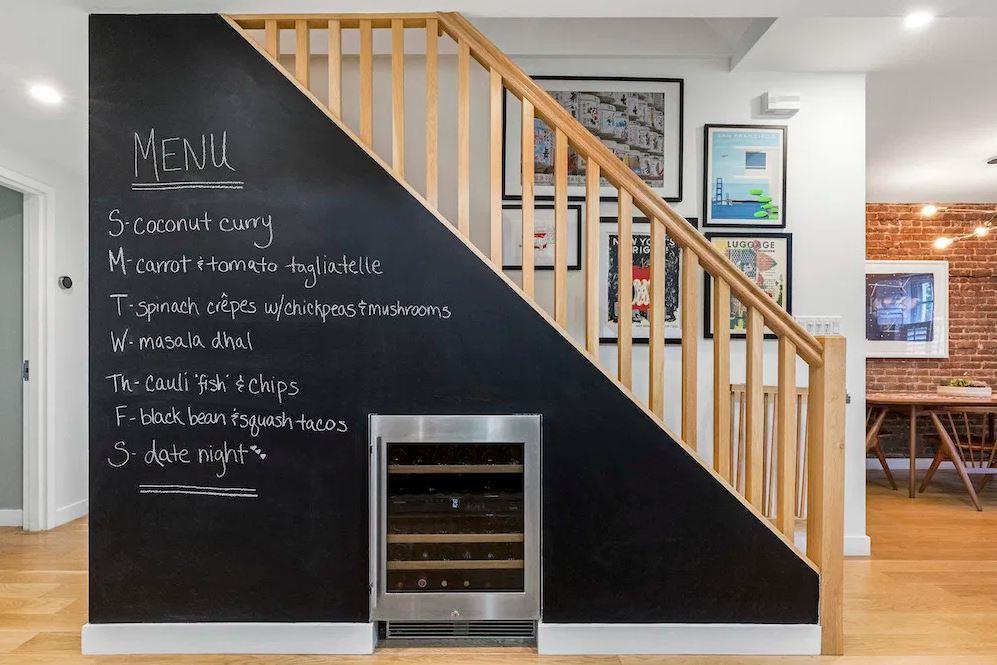 MENU
S- coconut curry
M- carrot & tomato tagliatelle
T- spinach crêpes w/chickpeas & mushrooms
W- masala dhal
Th- cauli 'fish' & chips
F- black bean & squash tacos
S- date night
SAN FRANCISCO
NEW YORK'S
LUGGAGE